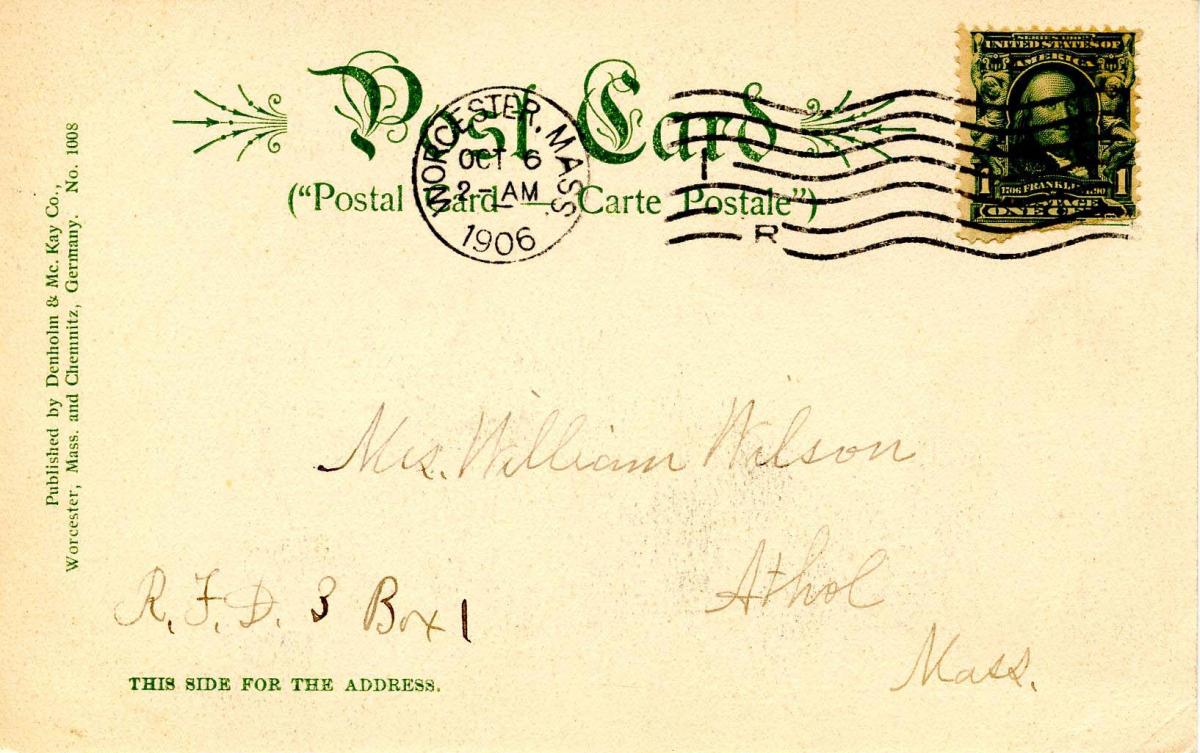 Post Card
("Postal Card — Carte Postale")
WORCESTER, MASS.
OCT 6
2 - AM
1906
R
SERIES 1902
UNITED STATES OF
AMERICA
1 1706 FRANKLIN 1790 1
POSTAGE
ONE CENT
Published by Denholm & Mc. Kay Co.,
Worcester, Mass. and Chemnitz, Germany. No. 1008
Mrs. William Wilson
Athol
Mass.
R. F. D. 3 Box 1
THIS SIDE FOR THE ADDRESS.